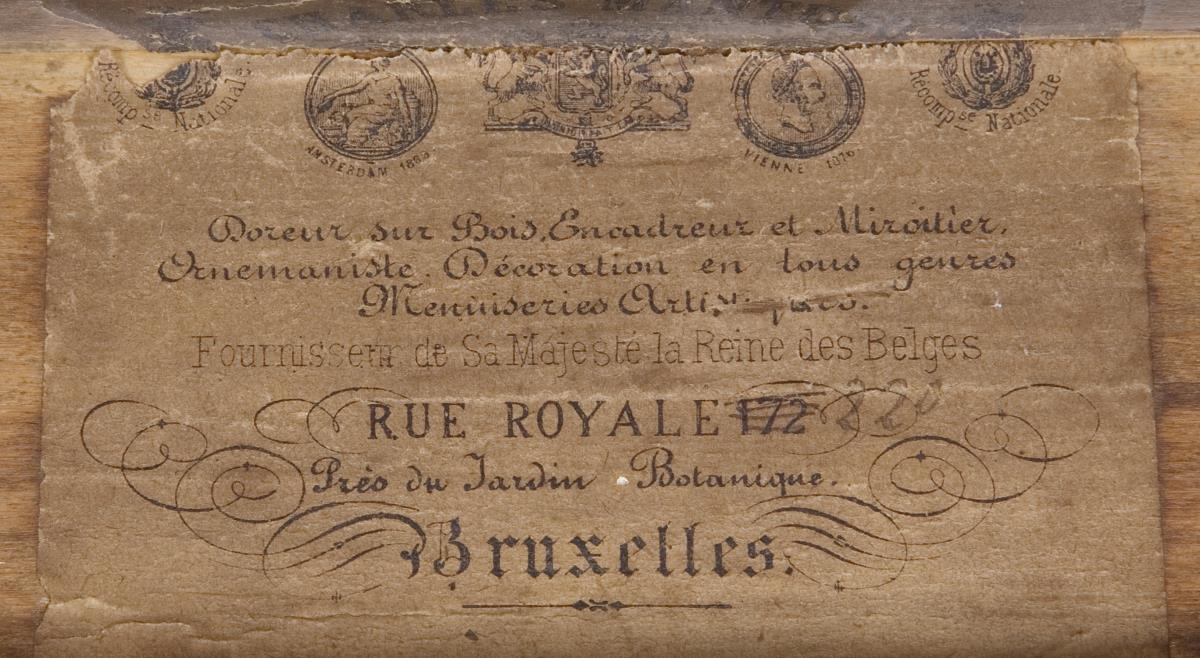 Récomp.se Nationale
AMSTERDAM 1883
VIENNE
Récomp.se Nationale
Doreur sur Bois, Encadreur et Miroitier.
Ornemaniste. Décoration en tous genres
Menuiseries Artistiques.
Fournisseur de Sa Majesté la Reine des Belges
RUE ROYALE 172 220
Près du Jardin Botanique.
Bruxelles.